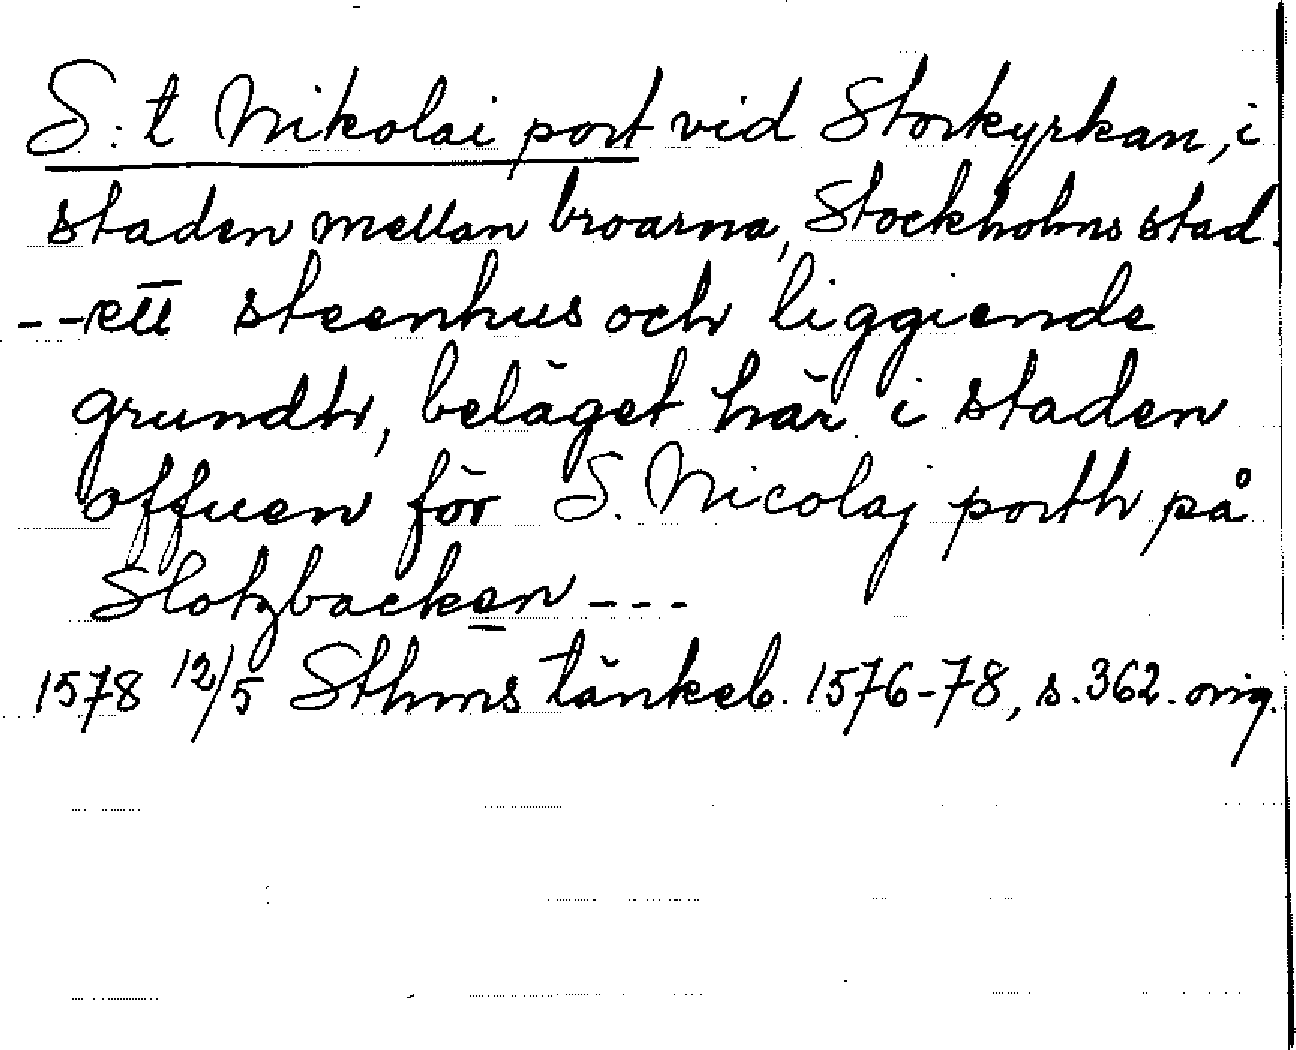 S:t Nikolai port vid Storkyrkan, i
staden mellan broarna, Stockholms stad.
-- ett steenhus och liggiende
grundh, beläget här i staden
offuen för S. Nicolaj porth på
Slotzbacken ---
1578 12/5 Sthms tänkeb. 1576-78, s. 362. orig.